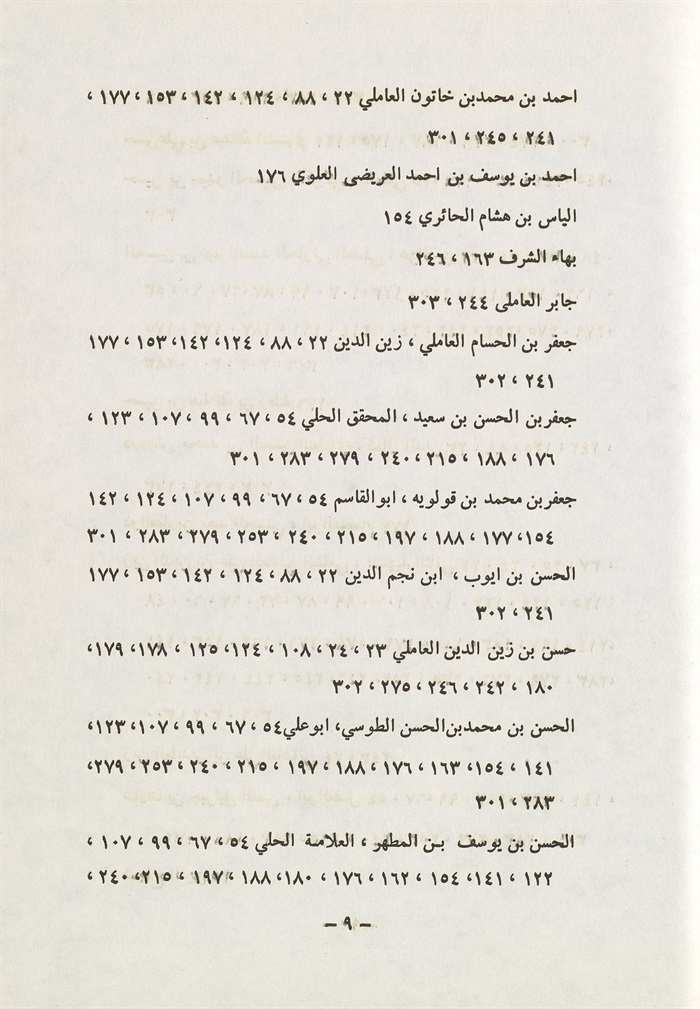 احمد بن محمدبن خاتون العاملي ٢٢ ، ٨٨ ، ١٢٤ ، ١٤٢ ، ١٥٣ ، ١٧٧ ،
٢٤١ ، ٢٤٥ ، ٣٠١
احمد بن يوسف بن احمد العريضى العلوي ١٧٦
الياس بن هشام الحائري ١٥٤
بهاء الشرف ١٦٣ ، ٢٤٦
جابر العاملى ٢٤٤ ، ٣٠٣
جعفر بن الحسام العاملي ، زين الدين ٢٢ ، ٨٨ ، ١٢٤، ١٤٢، ١٥٣ ، ١٧٧
٢٤١ ، ٣٠٢
جعفربن الحسن بن سعيد ، المحقق الحلي ٥٤ ، ٦٧ ، ٩٩ ، ١٠٧ ، ١٢٣ ،
١٧٦ ، ١٨٨ ، ٢١٥ ، ٢٤٠ ، ٢٧٩ ، ٢٨٣ ، ٣٠١
جعفربن محمد بن قولويه ، ابوالقاسم ٥٤ ، ٦٧ ، ٩٩ ، ١٠٧ ، ١٢٤ ، ١٤٢
١٥٤، ١٧٧ ، ١٨٨ ، ١٩٧ ، ٢١٥ ، ٢٤٠ ، ٢٥٣ ، ٢٧٩ ، ٢٨٣ ، ٣٠١
الحسن بن ايوب ، ابن نجم الدين ٢٢ ، ٨٨ ، ١٢٤ ، ١٤٢ ، ١٥٣ ، ١٧٧
٢٤١ ، ٣٠٢
حسن بن زين الدين العاملي ٢٣ ، ٢٤ ، ١٠٨ ، ١٢٤، ١٢٥ ، ١٧٨، ١٧٩،
١٨٠ ، ٢٤٢ ، ٢٤٦ ، ٢٧٥ ، ٣٠٢
الحسن بن محمدبن‌الحسن الطوسي، ابوعلي٥٤ ، ٦٧ ، ٩٩ ، ١٠٧، ١٢٣،
١٤١ ، ١٥٤، ١٦٣ ، ١٧٦ ، ١٨٨ ، ١٩٧ ، ٢١٥ ، ٢٤٠ ، ٢٥٣ ، ٢٧٩،
٢٨٣ ، ٣٠١
الحسن بن يوسف بن المطهر ، العلامة الحلي ٥٤ ، ٦٧ ، ٩٩ ، ١٠٧ ،
١٢٢ ، ١٤١، ١٥٤ ، ١٦٢ ، ١٧٦ ، ١٨٠، ١٨٨ ، ١٩٧ ، ٢١٥، ٢٤٠ ،
– ٩ –